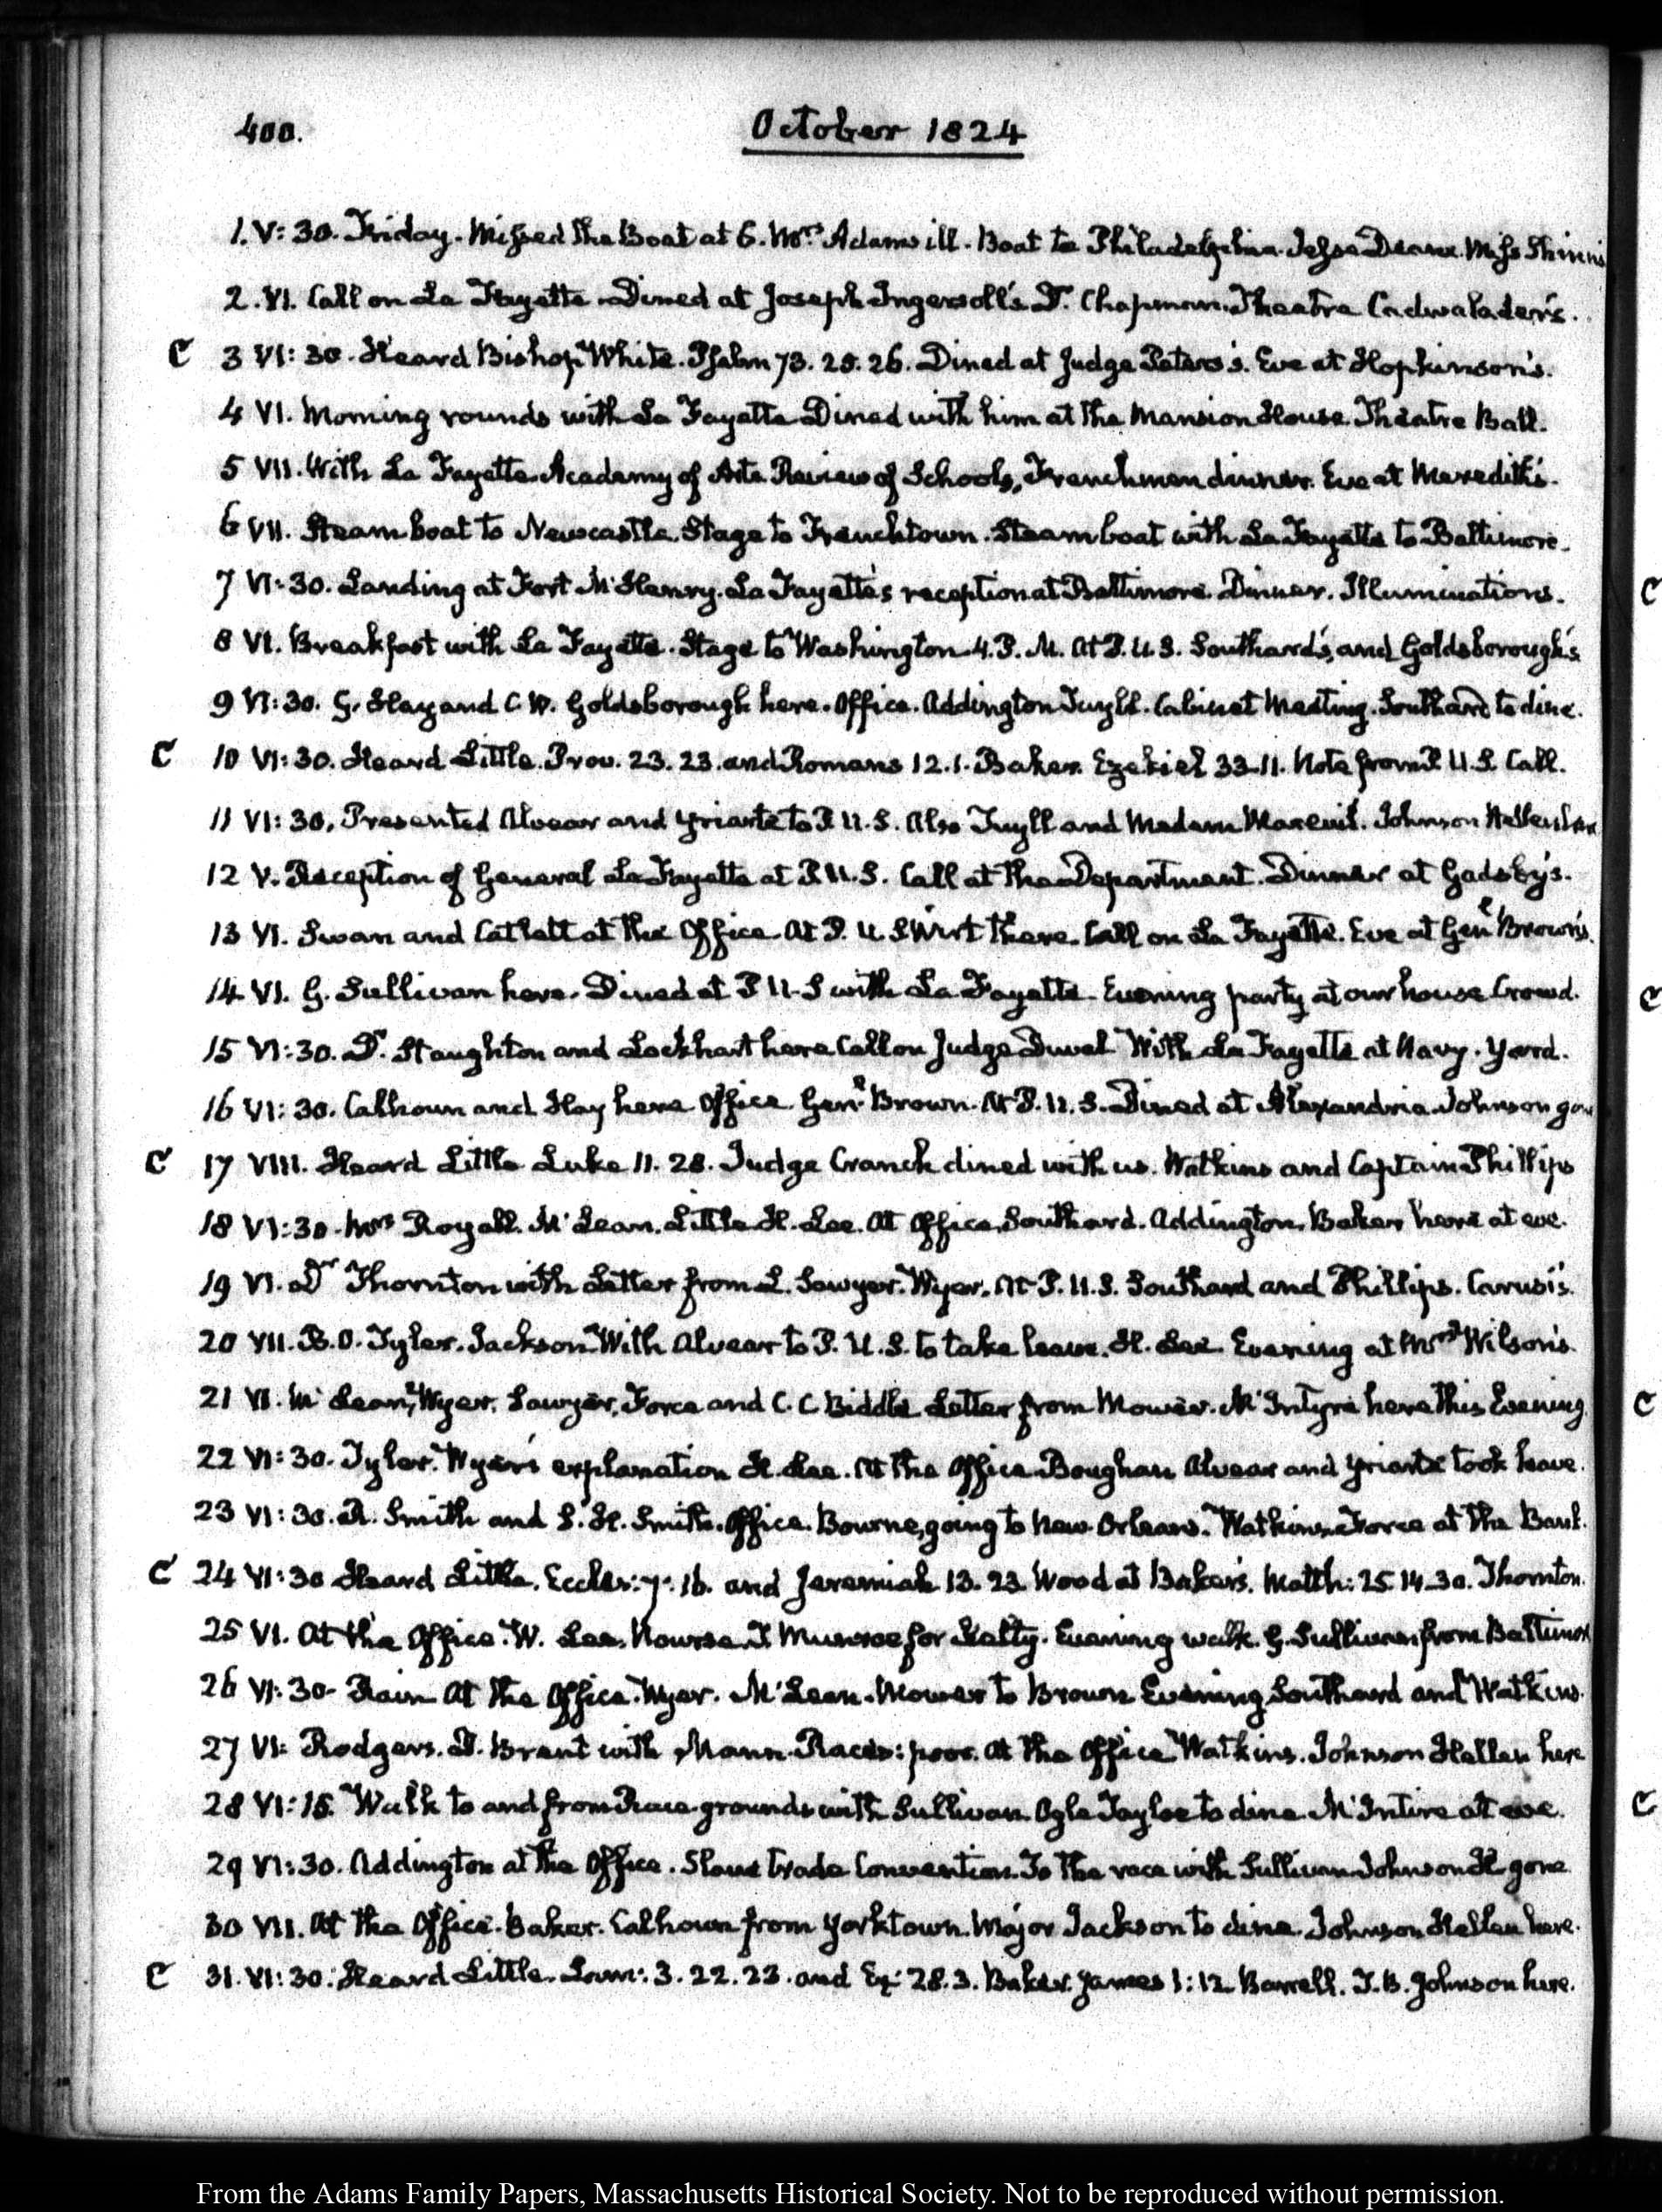 400.
October 1824
1. V: 30. Friday. Missed the Boat at 6. Mrs. Adams ill. Boat to Philadelphia. Jesse Deane. Miss
2. VI. Call on La Fayette. Dined at Joseph Ingersoll's Dr. Chapman. Theatre Cadwalader's.
C 3 VI: 30. Heard Bishop White. Psalm 73. 25. 26. Dined at Judge Peters's. Eve at Hopkinson's.
4 VI. Morning rounds with La Fayette Dined with him at the Mansion House. Theatre Ball.
5 VII. With La Fayette. Academy of Arts. Review of Schools, Frenchmen dinner. Eve at Meredith's.
6 VII. Steam boat to Newcastle. Stage to Frenchtown. Steam boat with La Fayette to Baltimore.
7 VI: 30. Landing at Fort McHenry. La Fayette's reception at Baltimore. Dinner. Illuminations.
8 VI. Breakfast with La Fayette. Stage to Washington 4. P. M. At P. U. S. Southard's, and Goldsborough's
9 VI: 30. G. Hay and C. W. Goldsborough here. Office. Addington Tuyll. Cabinet Meeting. Southard to dine.
C 10 VI: 30. Heard Little. Prov. 23. 23. and Romans 12. 1. Baker. Ezekiel 33. 11. Note from P. U. S. Call.
11 VI: 30. Presented Alvear and Yriarte to P. U. S. Also Tuyll and Madam Mareuil. Johnson Hellen
12 V. Reception of General La Fayette at P. U. S. Call at the Department. Dinner at Gadsby's.
13 VI. Swan and Catlett at the Office. At P. U. S Wirt there. Call on La Fayette. Eve at Genl. Brown's.
14 VI. G. Sullivan here. Dined at P U. S with La Fayette. Evening party at our house Crowd.
15 VI: 30. Dr. Staughton and Lockhart here Call on Judge Duval With La Fayette at Navy. Yard.
16 VI: 30. Calhoun and Hay here Office. Genl. Brown. At P. U. S. Dined at Alexandria Johnson gone
C 17 VIII. Heard Little Luke 11. 28. Judge Cranch dined with us. Watkins and Captain Phillips
18 VI: 30. Mrs Royall. McLean. Little H. Lee. At Office, Southard. Addington. Baker here at eve.
19 VI. Dr Thornton with Letter from L. Sawyer. Wyer. At P. U. S. Southard and Phillips. Carusi's.
20 VII. B. O. Tyler. Jackson With Alvear to P. U. S. to take leave. H. Lee. Evening at Mrs Wilson's.
21 VI. McLean, Wyer, Sawyer, Force and C. C Biddle Letter from Mower. McIntyre here this Evening
22 VI: 30. Tyler. Wyer's explanation H. Lee. At the Office Boughan Alvear and Yriarte took leave.
23 VI: 30. R. Smith and S. H. Smith. Office. Bourne, going to New Orleans. Watkins. Force at the Bank.
C 24 VI: 30 Heard Little. Eccles: 7. 16. and Jeremiah 13. 23 Wood at Baker's. Matth: 25. 14-30. Thornton.
25 VI. At the Office. W. Lee. Nourse. T Munroe for Kelty. Evening walk. G. Sullivan from Baltimore
26 VI: 30. Rain At the Office. Wyer. McLean. Mower to Brown Evening Southard and Watkins.
27 VI: Rodgers. D. Brent with Mann. Races: poor. At the Office Watkins. Johnson Hellen here
28 VI: 15. Walk to and from Race grounds with Sullivan. Ogle Tayloe to dine. McIntire at eve.
29 VI: 30. Addington at the Office. Slave trade Convention. To the race with Sullivan Johnson H gone
30 VII. At the Office. Baker. Calhoun from Yorktown. Major Jackson to dine. Johnson Hellen here.
C 31. VI: 30. Heard Little. Lam: 3. 22. 23. and Ez: 28. 3. Baker. James 1: 12 Barrell. T. B. Johnson here.
From the Adams Family Papers, Massachusetts Historical Society. Not to be reproduced without permission.